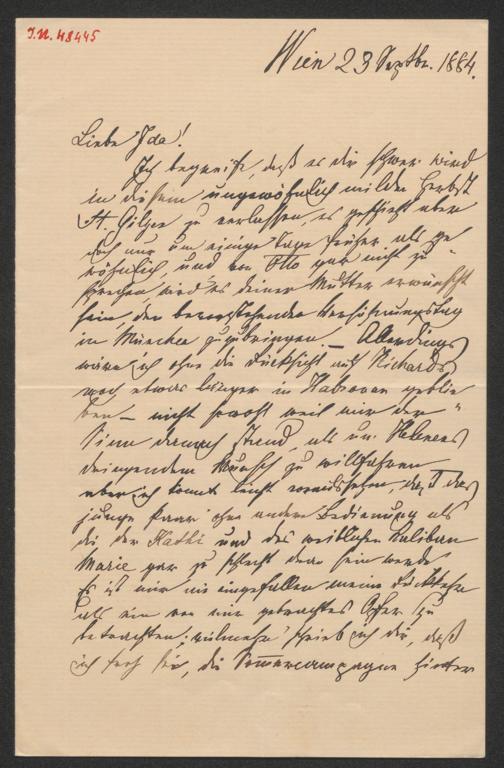 I.N. 48445
Wien 23 Septbr. 1884.
Liebe Ida!
Ich begreife, daß es dir schwer wird
in diesem ungewöhnlich milden Herbst
St. Gilgen zu verlassen, es geschieht aber
doch nur um einige Tage früher als ge
wöhnlich, und von Otto gar nicht zu
sprechen, wird es deiner Mutter erwünscht
sein, den bevorstehenden
in München zuzubringen. – Allerdings
wäre ich ohne die Rücksicht auf Richards
noch etwas länger in geblie
ben – nicht sowohl weil mir der
Sinn darnach stand, als um Helenens
dringendem Wunsch zu willfahren
aber ich konnte leicht voraussehen, daß das
junge Paar ohne andere Bedienung als
die der Kathi und des weiblichen Kaliban
Marie gar zu schlecht dran sein werde
Es ist mir nie eingefallen meine Rückkehr
als ein von mir gebrachtes Opfer zu
betrachten; vielmehr schrieb ich dir, daß
ich froh bin, die Sommercampagne hinter